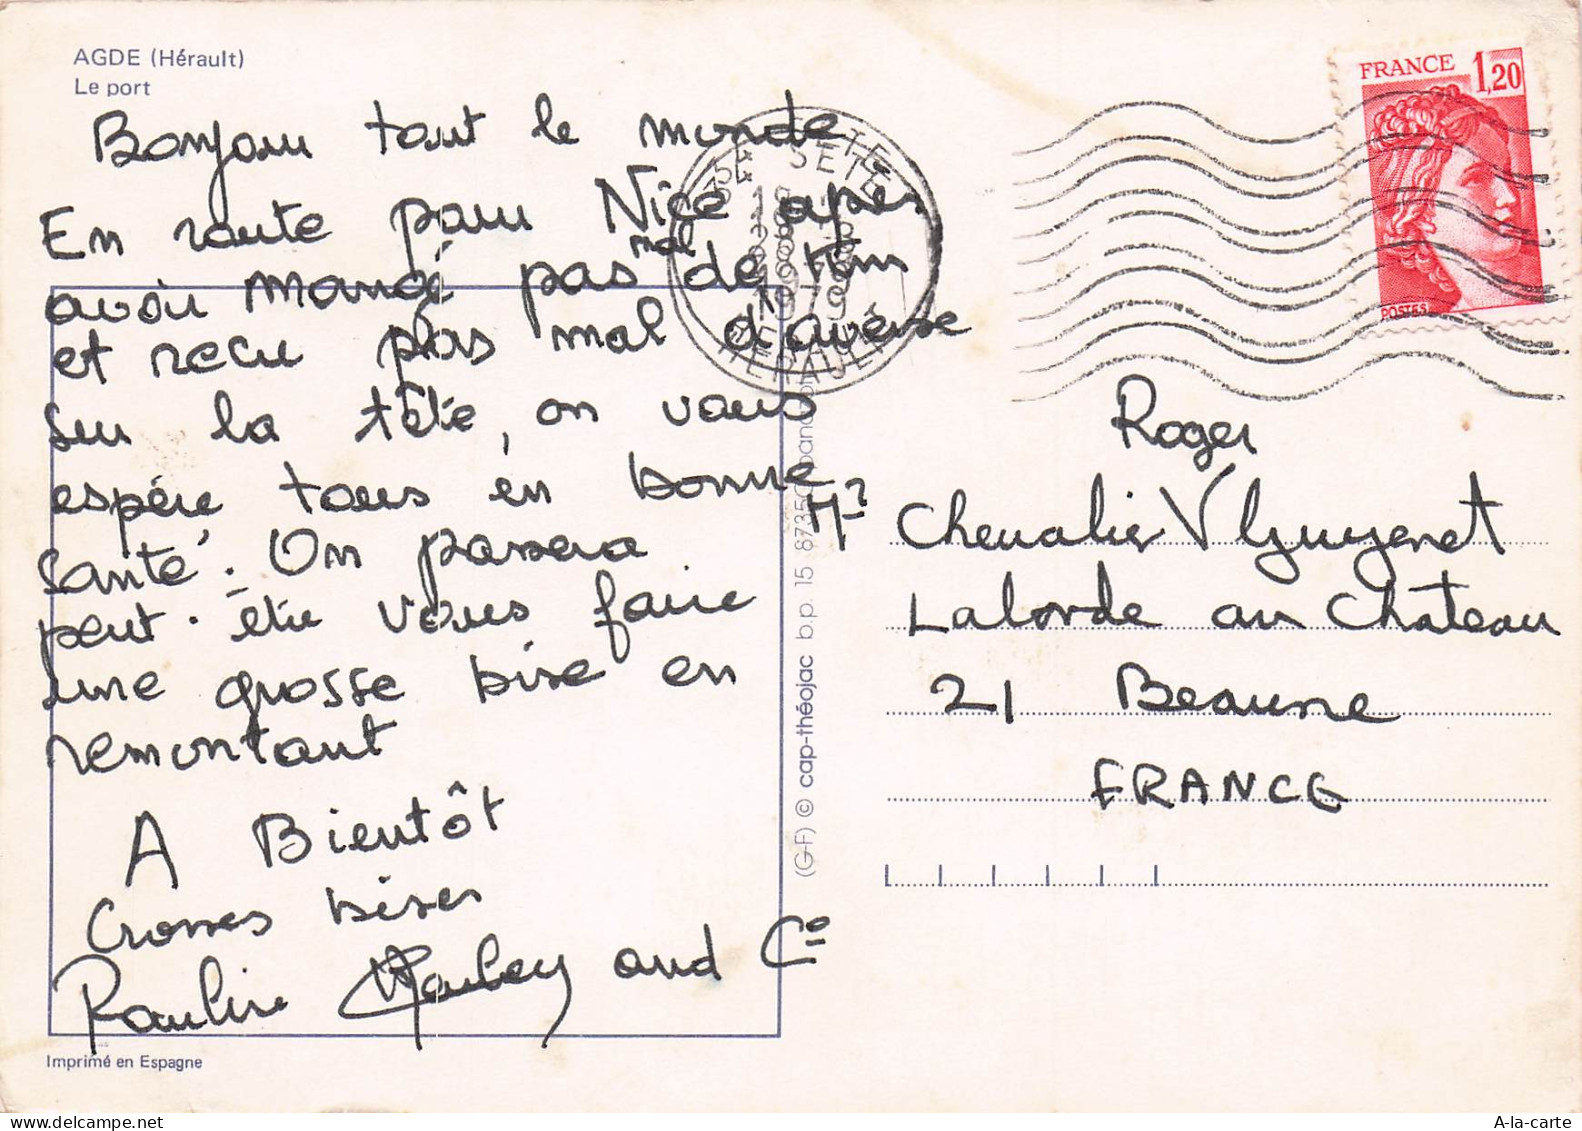 AGDE (Hérault)
Le port
Bonjour tout le monde
En route pour Nice après
avoir mangé pas mal de km
et recu plas mal d'averse
sur la tête, on vous
espère tous en bonne
santé. On passera
peut-être vous faire
une grosse bise en
remontant
A Bientôt
Grosses bises
Pauline and Cie
Imprimé en Espagne
(G-F) © cap-théojac b.p. 15 87350 panazol
34 SETE
1979
HERAULT
FRANCE 1,20
POSTES
Roger
Mr Chevalier
Laborde au Château
21 Beaune
FRANCE
A-la-carte